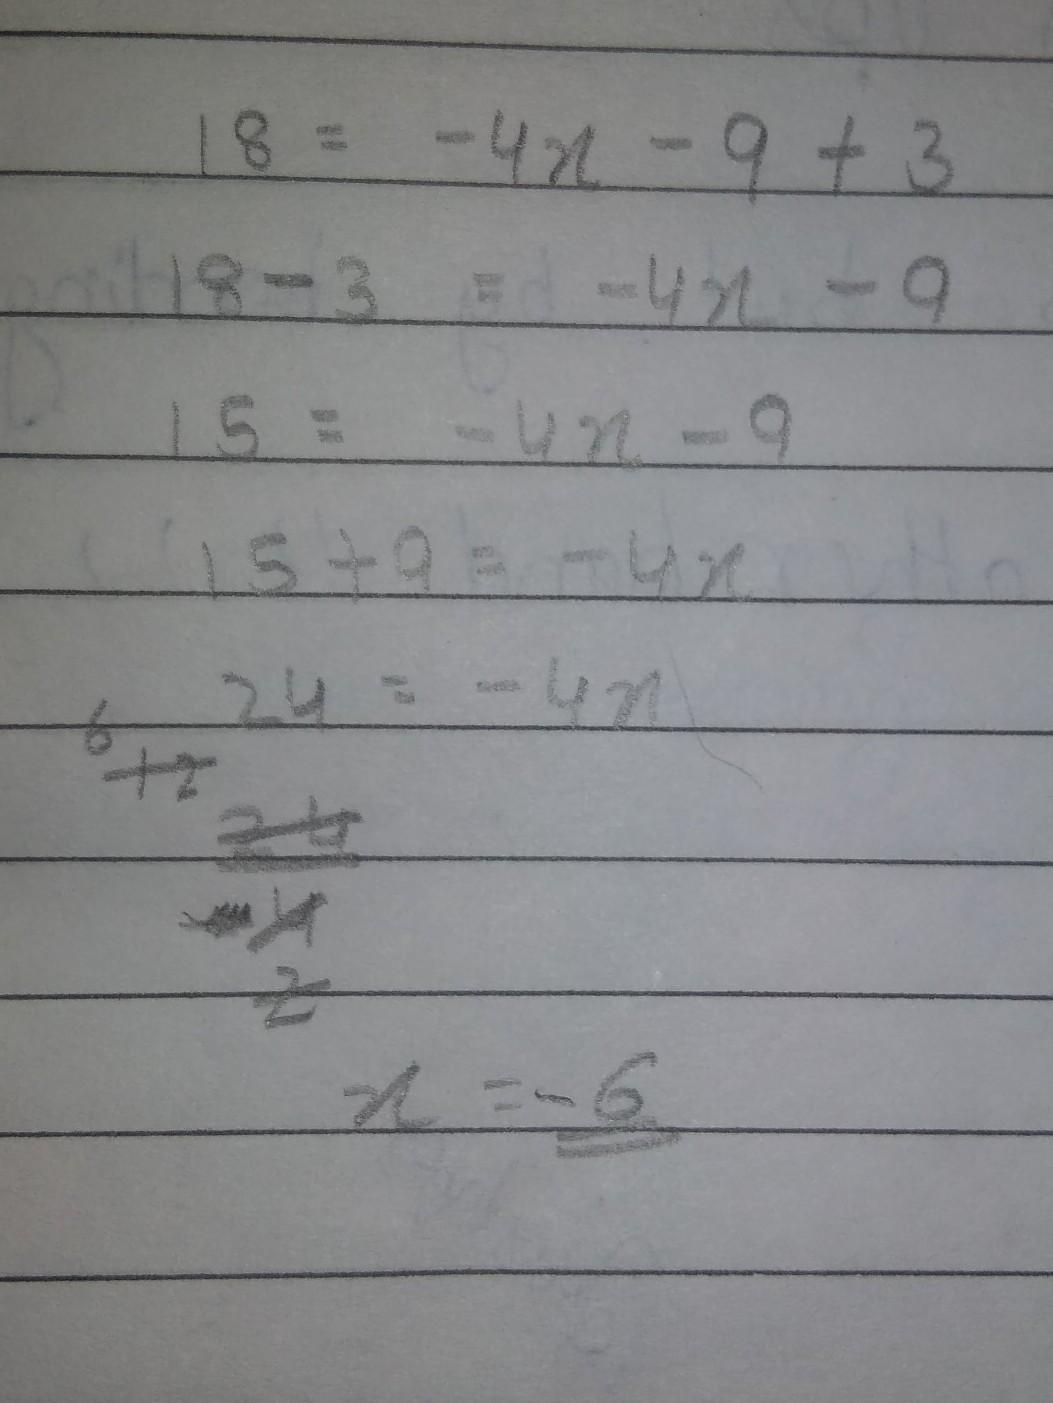 18 = -4x - 9 + 3
18 - 3 = -4x - 9
15 = -4x - 9
15 + 9 = -4x
24 = -4x
6
12
24
-4
2
x = -6